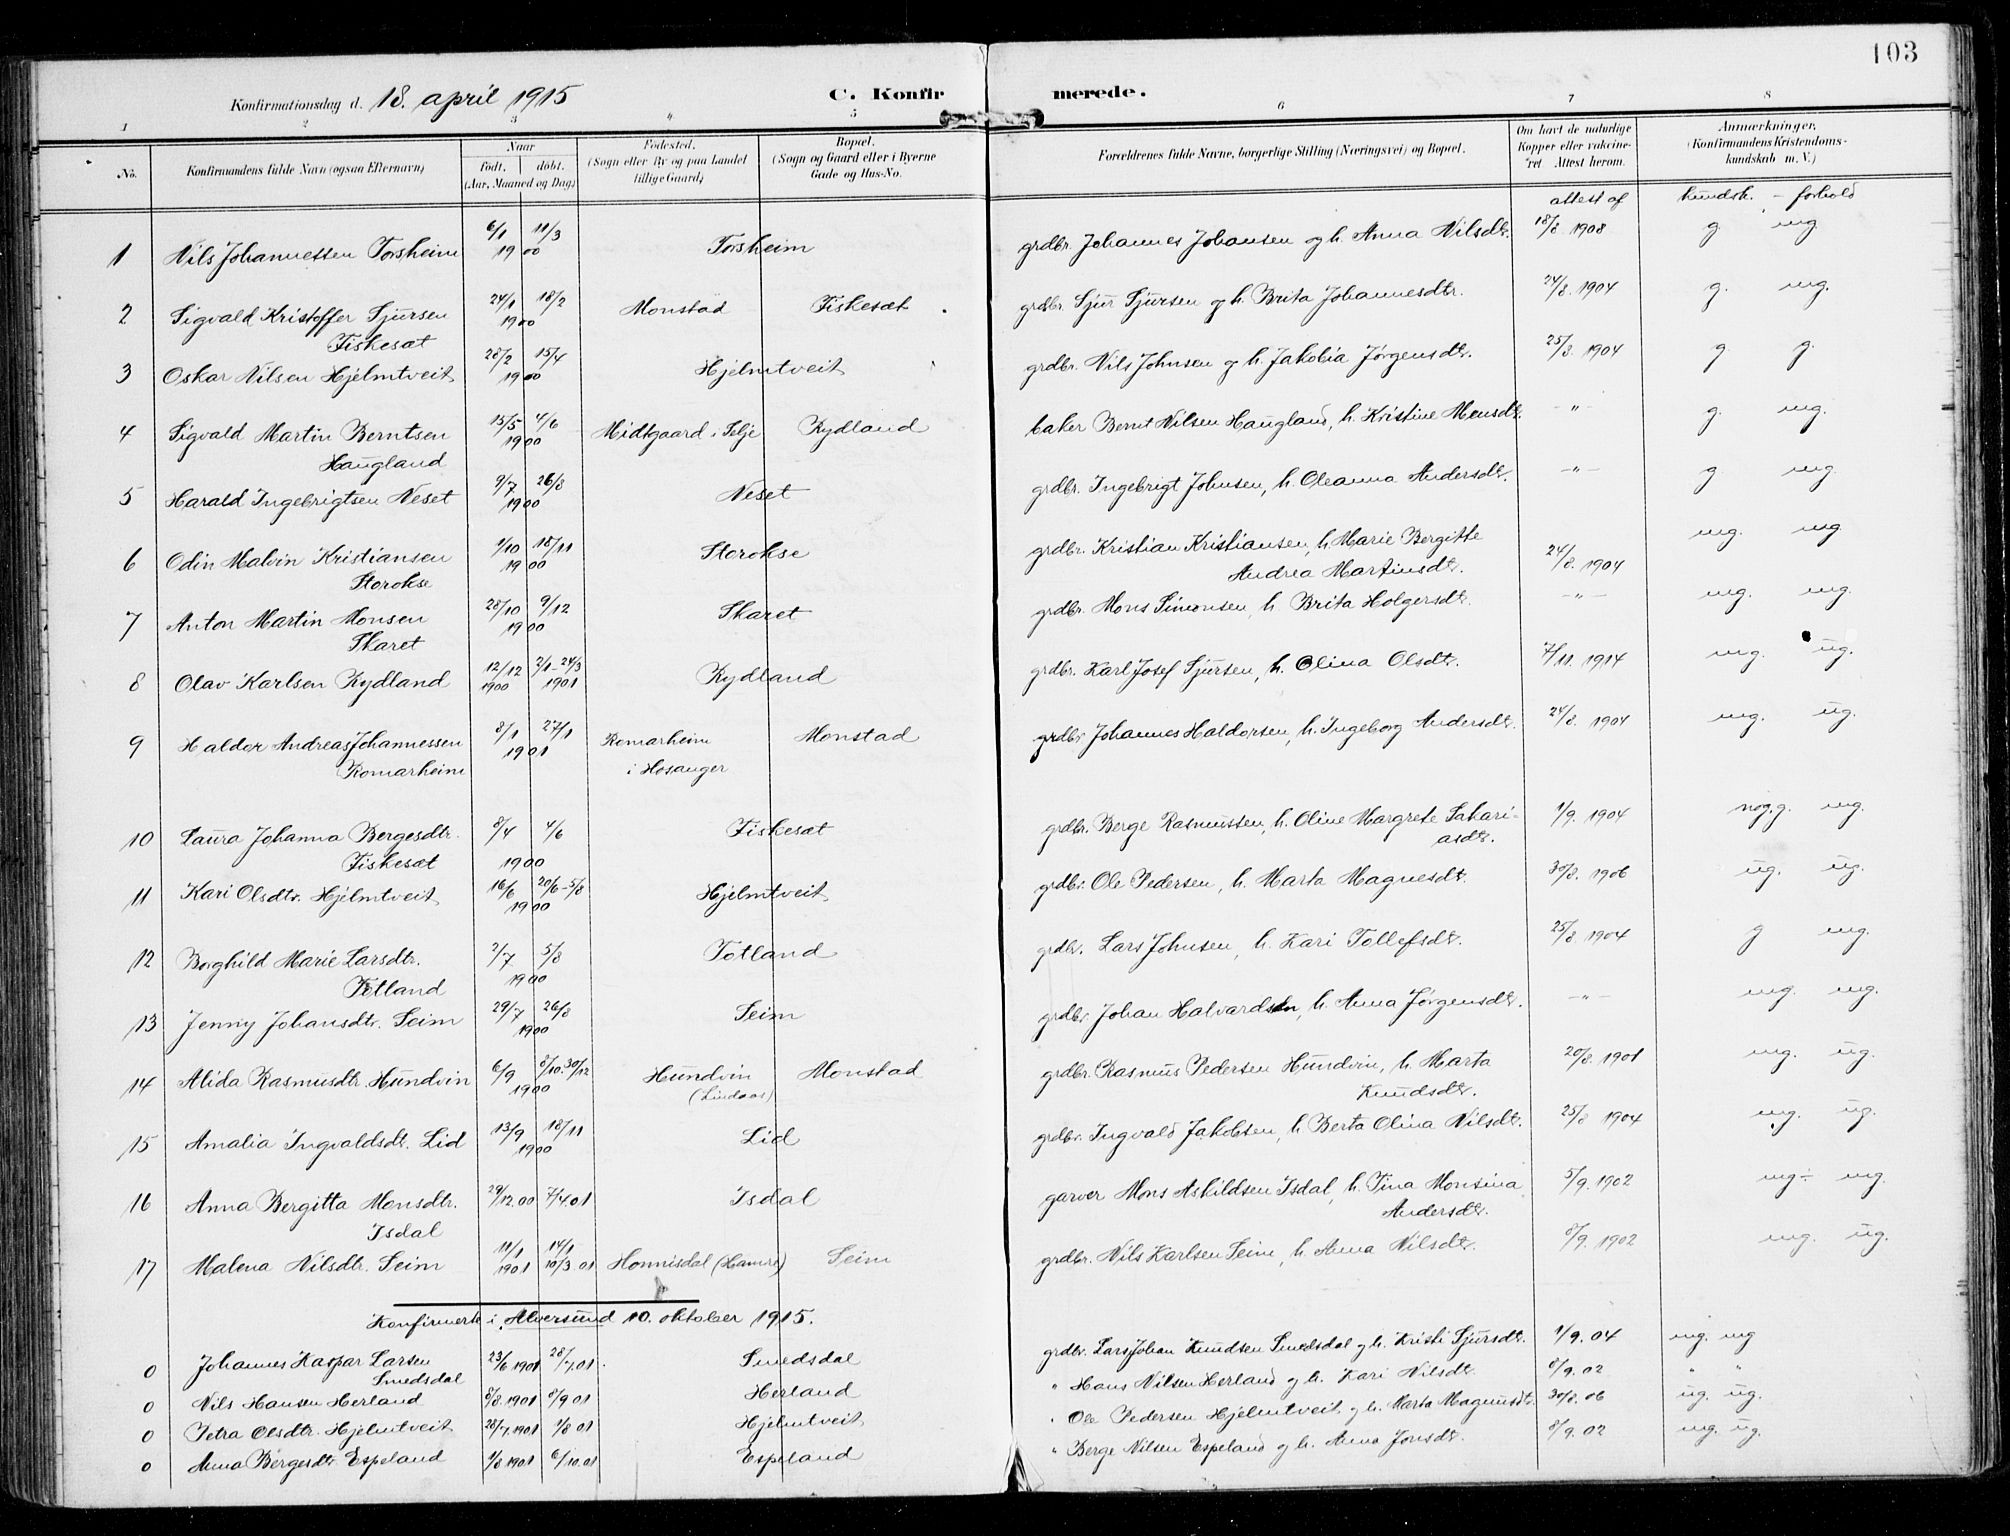 103
Konfirmationsdag d. 18. april 1915 C. Konfirmerede.
1 2 3 4 5 6 7 8
No. Konfirmandens fulde Navn (ogsaa Efternavn) Naar født, døbt. (Aar, Maaned og Dag) Fødested. (Sogn eller By og paa Landet tillige Gaard) Bopæl. (Sogn og Gaard eller i Byerne Gade og Hus-No. Forældrenes fulde Navne, borgerlige Stilling (Næringsvei) og Bopæl. Om havt de naturlige Kopper eller vakcineret Attest herom. Anmærkninger, (Konfirmandens Kristendomskundskab m. V.)
attest af kundsk. – forhold
1 Nils Johannessen Forsheim 6/1 11/3 1900 Forsheim grdbr. Johannes Johansen og h. Anna Nilsdtr. 18/8 1908 g. mg
2 Sigvald Kristoffer Sjursen Fiskesæt 24/1 18/2 1900 Monstad Fiskesæt grdbr. Sjur Sjursen og h. Brita Johannesdtr. 24/8. 1904 g. mg.
3 Oskar Nilsen Hjelmtveit 28/2 15/4 1900 Hjelmtveit grdbr. Nils Johnsen og h. Jakobia Jørgensdtr. 25/8. 1904 g. g.
4 Sigvald Martin Berntsen Haugland 15/5 4/6 1900 Midtgaard i Selje Rydland baker Bernt Nilsen Haugland, h. Kristine Monsdtr. –"– g. mg.
5 Harald Ingebrigtsen Neset 9/7 26/8 1900 Neset grdbr. Ingebrigt Johnsen, h. Oleanna Andersdtr. –"– g. mg.
6 Odin Malvin Kristiansen Storokse 1/10 18/11 1900 Storokse grdbr. Kristian Kristiansen, h. Marie Bergitte Andrea Martinsdtr. 24/8. 1904 mg. mg.
7 Anton Martin Monsen Skaret 28/10 9/12 1900 Skaret grdbr. Mons Simonsen, h. Brita Holgersdtr. –"– mg. mg.
8 Olav Karlsen Rydland 12/12 1900 2/1–24/3 1901 Rydland grdbr. Karl Josef Sjursen, h. Olina Olsdtr. 7/11. 1914 mg. ug.
9 Haldor Andreas Johannessen Romarheim 8/1 27/1 1901 Romarheim i Hosanger Monstad grdbr. Johannes Haldorsen, h. Ingeborg Andersdtr. 24/8. 1904 mg. ug.
10 Laura Johanna Bergesdtr. Fiskesæt 8/4 4/6 1900 Fiskesæt grdbr. Berge Rasmussen, h. Oline Margrete Sakariasdtr. 1/9. 1904 nog.g. mg.
11 Kari Olsdtr. Hjelmtveit 16/6 20/6–5/8 1900 Hjelmtveit grdbr. Ole Pedersen, h. Marta Magnesdtr. 30/8. 1906 ug. ug.
12 Borghild Marie Larsdtr. Totland 2/7 5/8 1900 Totland grdbr. Lars Johnsen, h. Kari Tollefsdtr. 25/8 1904 g mg.
13 Jenny Johansdtr. Seim 29/7 26/8 1900 Seim grdbr. Johan Halvardsen, h. Anna Jørgensdtr. –"– mg. mg.
14 Alida Rasmusdtr. Hundvin 6/9 8/10. 30/12 1900 Hundvin (Lindaas) Monstad grdbr. Rasmus Pedersen Hundvin, h. Marta Knudsdtr. 20/8. 1901 mg. ug.
15 Amalia Ingvaldsdt. Lid 13/9 18/11 1900 Lid grdbr. Ingvald Jakobsen, h. Berta Olina Nilsdtr. 25/8 1904 mg. ug.
16 Anna Bergitta Monsdtr. Isdal 29/12.00 7/4.01 Isdal garver Mons Askildsen Isdal, h. Tina Monsina Andersdtr. 5/9. 1902 mg÷ mg.
17 Malena Nilsdtr. Seim 11/1 1901 14/1 10/3.01 Honnisdal (Hamre) Seim grdbr. Nils Karlsen Seim, h. Anna Nilsdtr. 8/9. 1902 mg. ug.
Konfirmerte i Alversund 10. oktober 1915.
0 Johannes Kaspar Larsen Smedsdal 23/6 1901 28/7.01. Smedsdal grdbr. Lars Johan Knudsen Smedsdal og h. Kristi Sjursdtr. 1/9. 04 mg. mg
0 Nils Hansen Herland 8/8.1901 8/9 01 Herland " Hans Nilsen Herland og h. Kari Nilsdtr. 8/9. 02 " "
0 Petra Olsdtr. Hjelmtveit 28/7.1901 1/8 01 Hjelmtveit " Ole Pedersen Hjelmtveit og h. Marta Magnusdtr. 30/8. 06 ug. ug.
0 Anna Bergesdtr. Espeland 1/8 1901 6/10.01 Espeland " Berge Nilsen Espeland og h. Anna Jonsdtr. 8/9. 02 mg. ug.